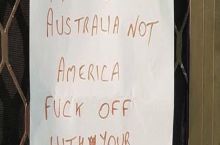 AUSTRALIA NOT
AMERICA
FUCK OFF
WITH YOUR